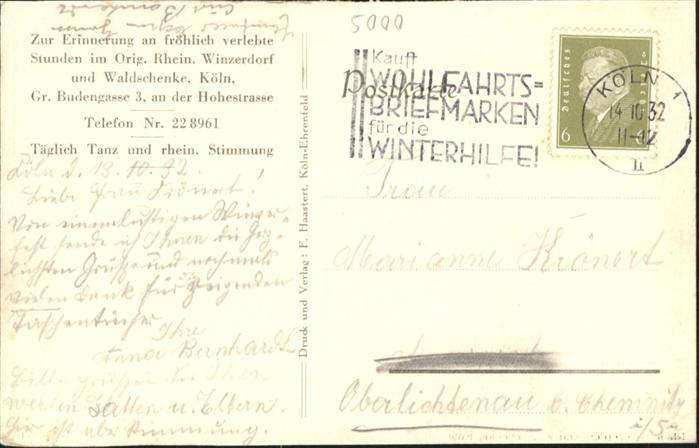 5000
Zur Erinnerung an fröhlich verlebte
Stunden im Orig. Rhein. Winzerdorf
und Waldschenke, Köln,
Gr. Budengasse 3, an der Hohestrasse
Telefon Nr. 228961
Täglich Tanz und rhein. Stimmung
Köln d. 13.10.32.
Liebe Frau Krönert!
Von einem lustigen Winzer-
fest sende ich Ihnen die herz-
lichsten Grüße und nochmals
vielen Dank für
Taschentücher
Ihre
Anna Bernhardt
Bitte grüßen Sie Ihren
werten Gatten u. Eltern.
Hier ist aber Stimmung.
Druck und Verlag: F. Haastert, Köln-Ehrenfeld
Postkarte
Kauft
WOHLFAHRTS=
BRIEFMARKEN
für die
WINTERHILFE!
Deutsches
6
KÖLN 1
14 10 32
11-12
II
Frau
Marianne Krönert
Oberlichtenau b. Chemnitz
i/Sa